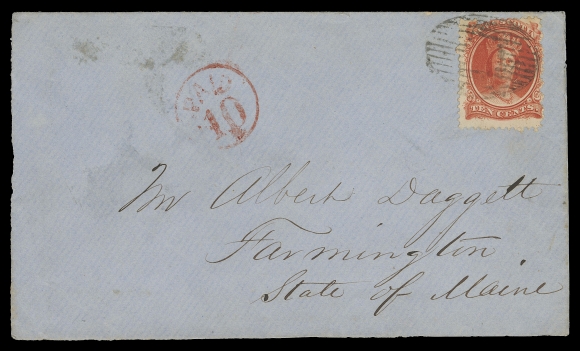 PAID
10
TEN CENTS
Mr Albert Daggett
Farmington
State of Maine